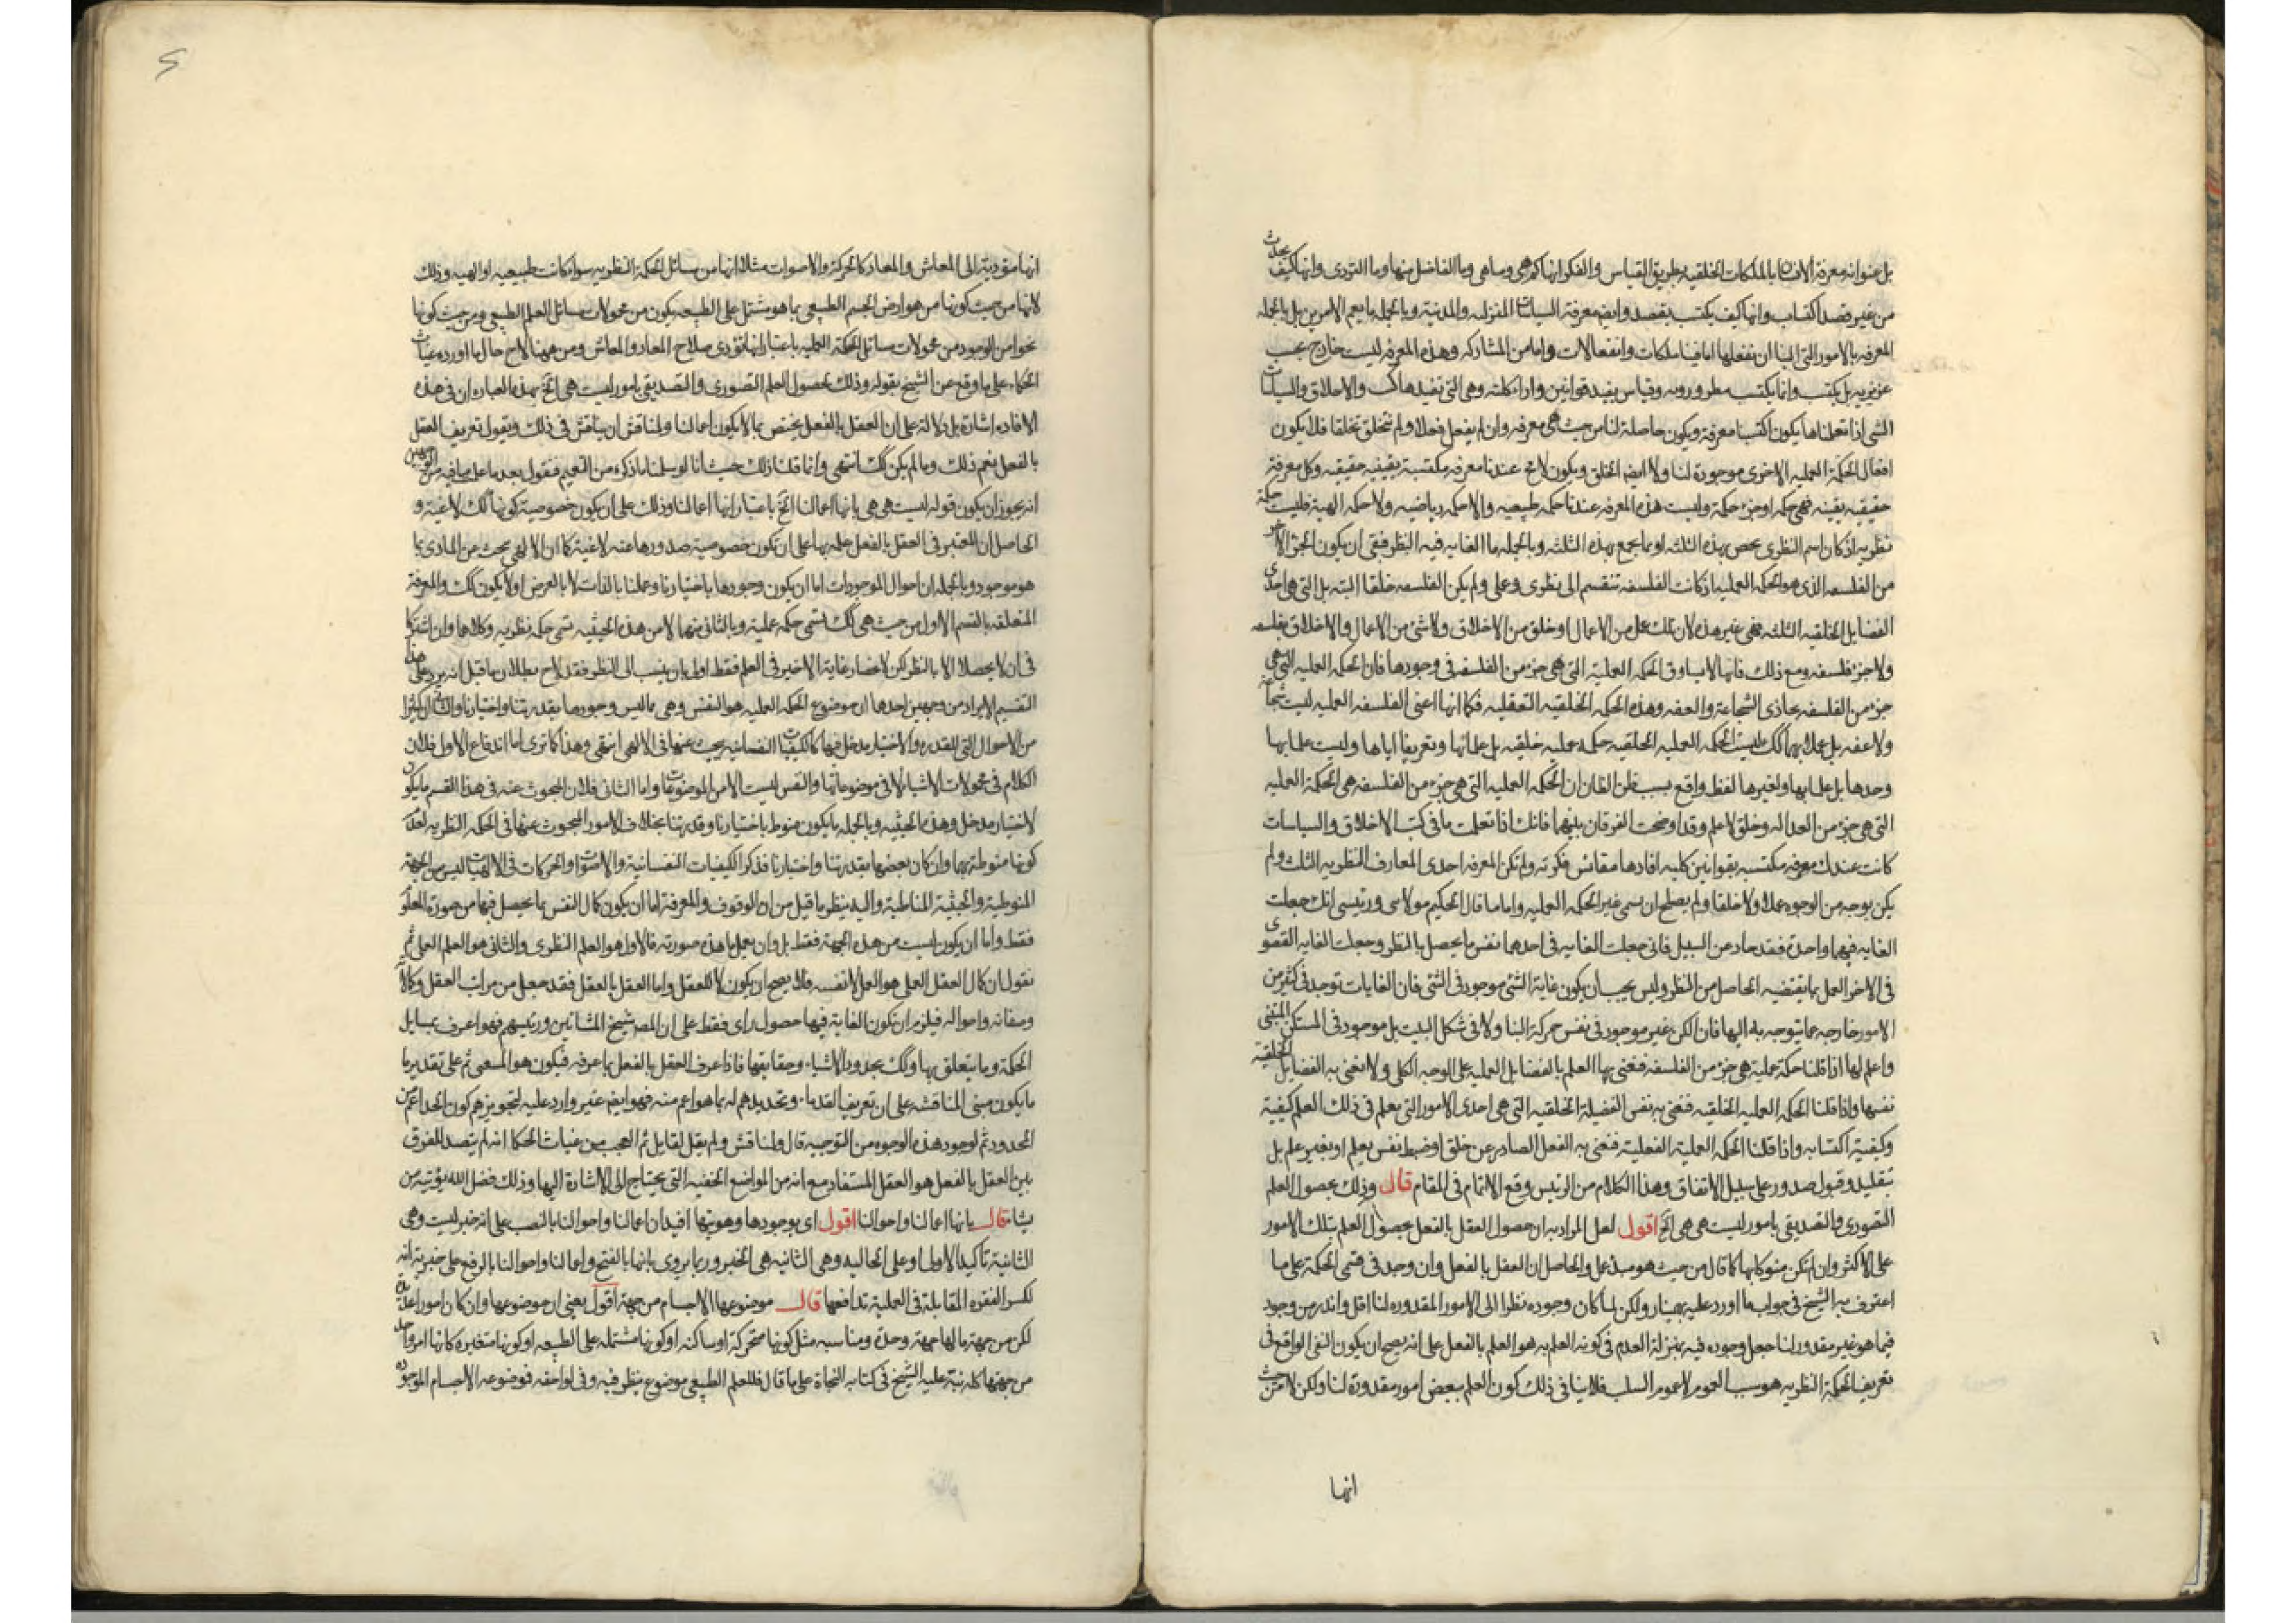 بل عنوا به معرفة الانسان بالملكات الخلقيه بطريق القياس والفكر انها كم هى وما هى وما الفاضل منها وما الردى وانها كيف يحدث
من غير قصد اكتساب وانها كيف يكتسب بقصد وايضا معرفة السياسات المنزليه والمدنية وبالجمله ما يعم الامرين بل بالجمله
المعرفه بالامور التى الينا ان نفعلها اما فينا ملكات وانفعالات واما من المشاركه وهذه المعرفه ليست
غريزيه بل يكتسب وانما يكتسب بنظر ورويه وقياس يفيد قوانين واراء كلية وهى التى تفيدها كتب الاخلاق والسياسات
التى اذا تعلمناها يكون اكتسبنا معرفة ويكون حاصلة لنا من حيث هى معرفه وان لم نفعل فعلا ولم نتخلق تخلقا فلا يكون
افعال الحكمة العمليه الاخرى موجودة لنا ولا ايضا الخلق ويكون لا محة عندنا معرفه مكتسبة يقينيه حقيقيه وكل معرفة
حقيقيه يقينيه فهى حكمه او جزء حكمة وليست هذه المعرفه عندنا حكمه طبيعيه ولا حكمه رياضيه ولا حكمه الهية فليست حكمة
نظريه اذ كان اسم النظرى يخص بهذه الثلثه او بما يجمع بهذه الثلثه وبالجمله ما الغايه فيه النظر فبقى ان يكون الجزء الاخر
من الفلسفه الذى هو الحكمه العمليه اذ كانت الفلسفه تنقسم الى نظرى وعملى ولم يكن الفلسفه خلقا البته بل التى هى احدى
الفضايل الخلقيه الثلثه فهى غير هذه لان تلك عمل من الاعمال او خلق من الاخلاق ولا شئ من الاعمال والاخلاق بفلسفه
ولا جزء فلسفه ومع ذلك فانها لا يساوق الحكمه العملية التى هى جزء من الفلسفه فى وجودها فان الحكمه العمليه التى هى
جزء من الفلسفه يحاذى الشجاعة والعفه وهذه الحكمه الخلقيه التعقليه فكما انها اعنى الفلسفه العمليه ليست شجاعة
ولا عفه بل علما بهما كك ليست الحكمه العمليه الخلقيه حكمه عمليه خلقيه بل علما بها وتعريفا اياها وليست علما بها
وحدها بل علما بها ولغيرها لفظ واقع بسبب ظن الظان ان الحكمه العمليه التى هى جزء من الفلسفه هى الحكمة العمليه
التى هى جزء من العداله وخلق لا علم وقد اوضحت الفرقان بينهما فانك اذا تعلمت ما فى كتب الاخلاق والسياسات
كانت عندك معرفه مكتسبه بقوانين كليه افادها مقائس فكرته ولم تكن المعرفه احدى المعارف النظريه الثلث ولم
يكن بوجه من الوجوه عملا ولا خلقا ولم يصلح ان يسمى غير الحكمه العمليه واما ما قال الحكيم مولاى ورئيسى انك جعلت
الغايه فيهما واحدة فقد حاد عن السبيل فانى جعلت الغايه فى احدهما نفس ما يحصل بالنظر وجعلت الغايه القصوى
فى الاخر العمل بما يقتضيه الحاصل من النظر وليس يجب ان يكون غاية الشئ موجود فى الشئ فان الغايات توجد فى كثير من
الامور خارجه عما يتوجه به اليها فان الكن غير موجود فى نفس حركة البنا ولا فى شكل البيت بل موجود فى المستكن المبتنى
واعلم انها اذا قلنا حكمة عملية هى جزء من الفلسفه فنعنى بها العلم بالفضايل العمليه على الوجه الكلى ولا نعنى به الفضايل الخلقيه
نفسها واذا قلنا الحكمه العمليه الخلقيه فنعنى به نفس الفضيلة الخلقيه التى هى احدى الامور التى يعلم فى ذلك العلم كيفية
وكيفية اكتسابه واذا قلنا الحكمه العملية الفعلية فنعنى به الفعل الصادر عن خلق او ضبط نفس بعلم او بغير علم بل
بتقليد وقبول صدور على سبيل الاتفاق وهذا الكلام من الرئيس وقع الاتمام فى المقام قال وذلك بحصول العلم
التصورى والتصديقى بامور ليست هى هى الخ اقول لعل المراد به ان حصول العقل بالفعل بحصول العلم بتلك الامور
على الاكثر وان لم تكن منوكابها كما قال من حيث هو مبدء عمل والحاصل ان العقل بالفعل وان وجد فى قسمى الحكمة على ما
اعترف به الشيخ فى جواب ما اورد عليه بهمنيار ولكن لما كان وجوده نظرا الى الامور المقدوره لنا اقل واندر من وجود
فيما هو غير مقدور لنا جعل وجوده فيه بمنزلة العدم فى كونه العلم به هو العلم بالفعل على انه يصح ان يكون النفى الواقع فى
تعريف الحكمة النظريه هو سلب العموم لا عموم السلب فلا ينافى ذلك كون العلم ببعض امور مقدورة لنا ولكن لا من حيث
انها
انها مؤدية الى المعاش والمعاد كالحركة والاصوات مثلا انها من مسائل الحكمة النظريه سواء كانت طبيعيه او الهيه وذلك
لانها من حيث كونها من عوارض الجسم الطبيعى بما هو مشتمل على الطبيعه يكون من محمولات مسائل العلم الطبيعى ومن حيث كونها
نحوا من الوجود من محمولات مسائل الحكمة العمليه باعتبار انها تؤدى صلاح المعاد والمعاش ومن ههنا لاح حال ما اورده غياث
الحكماء على ما وقع عن الشيخ بقوله وذلك بحصول العلم التصورى والتصديقى بامور ليست هى الخ بهذه العباره ان فى هذه
الافاده اشارة بل دلالة على ان العقل بالفعل يختص بما لا يكون اعمالنا ولمناقش ان يناقش فى ذلك ويقول تعريف العقل
بالفعل نعم ذلك وما لم يكن كك انتهى وانما قلنا ذلك حيث انا لو سلمنا ما ذكره من التعميم فنقول بعد ما علم ما فيه من الوجهين
انه يجوز ان يكون قوله ليست هى هى بانها اعمالنا الخ باعتبار انها اعمالنا وذلك على ان يكون خصوصية كونها كك لاغية و
الحاصل ان المعتبر فى العقل بالفعل حمله بها على ان تكون خصوصية صدورها عنه لاغية كما ان الالهى يبحث عن المادى بما
هو موجود وبالجمله ان احوال الموجودات اما ان يكون وجودها باختيارنا وعملنا بالذات لا بالعرض اولا يكون كك والمعرفة
المتعلقه بالقسم الاول من حيث هى كك تسمى حكمه عملية وبالثانى منهما لا من هذه الحيثيه تسمى حكمه نظريه وكلاهما وان اشتركا
فى ان لا يحصلا الا بالنظر لكن لاختصار غاية الاخير فى العلم فقط اولى بان ينسب الى النظر فقد لاح بطلان ما قيل انه يرد على هذا
التقسيم الايراد من وجهين احدهما ان موضوع الحكمه العمليه هو النفس وهى ما ليس وجودها بقدرتنا واختيارنا والثانى ان كثيرا
من الاحوال التى للقدره والاختيار مدخل فيها كالكيفيات النفسانيه يبحث عنها فى الالهى انتهى وهذا كما ترى اما اندفاع الاول فلان
الكلام فى محمولات الاشياء لا فى موضوعاتها والنفس ليست الا من الموضوعات واما الثانى فلان المبحوث عنه فى هذا القسم ما يكون
لاختيار مدخل وهذه الحيثيه وبالجمله ما يكون منوط باختيارنا وقدرتنا بخلاف الامور المبحوث عنها فى الحكمه النظريه لعدم
كونها منوطة بهما وان كان بعضها بقدرتنا واختيارنا فذكر الكيفيات النفسانية والاصوات والحركات فى الالهيات ليس من الجهة
المنوطية والحيثية المناطية واليه ينظر ما قيل من ان الوقوف والمعرفة اما ان يكون كمال النفس بما يحصل فيها من صورة المعلوم
فقط واما ان يكون ليست من هذه الجهة فقط بل وان يعمل ما هذه صورته فالاول هو العلم النظرى والثانى هو العلم العملى ثم
نقول ان كمال العقل العملى هو العمل لانفسه فلا يصح ان يكون كمالا للعقل واما العقل بالعقل فقد جعل من مراتب العقل وكمالاته
وصفاته واحواله فيلزم ان تكون الغاية فيها حصول راى فقط على ان المص شيخ المشائين ورئيسهم فهو اعرف بمسايل
الحكمة وما يتعلق بها وكك بحدود الاشياء وحقايقها فاذا عرف العقل بالفعل بما عرفه فيكون هو المسمى ثم على تقدير ما
ما يكون مبنى المناقشه على ان تعريف القدماء وتحديدهم له بما هو اعم منه فهو ايضا غير وارد عليه لتجويزهم كون الحد اعم من
المحدود ثم لوجود هذه الوجوه من التوجيه قال ولمناقش ولم يقل لقايل ثم العجب من غياث الحكما انه لم يتصد للفرق
بين العقل بالفعل هو العقل المستفاد مع انه من المواضع الخفيه التى يحتاج الى الاشارة اليها وذلك فضل الله يؤتيه من
يشاء قال بانها اعمالنا واحوالنا اقول اى بوجودها وهويتها افيد ان اعمالنا واحوالنا بالنصب على انه خبر ليست وهى
الثانية تاكيد الاولى او على الحاليه وهى الثانيه هى الخبر وربما يروى بانها بالفتح واعمالنا واحوالنا بالرفع على خبرية انه
لكسر الفقره المقابلة فى العملية تدافعها قال موضوعها الاجسام من جهة اقول يعنى ان موضوعها وان كان امورا عدة
لكن من جهة ما لها جهة وحدة ومناسبه مثل كونها متحركة او ساكنه او كونها مشتمله على الطبيعه او كونها متغيره كانها امر واحد
من جهتها كله نبه عليه الشيخ فى كتابه النجاة على ما قال فللعلم الطبيعى موضوع ينظر فيه وفى لواحقه فوضوعه الاجسام الموجوده